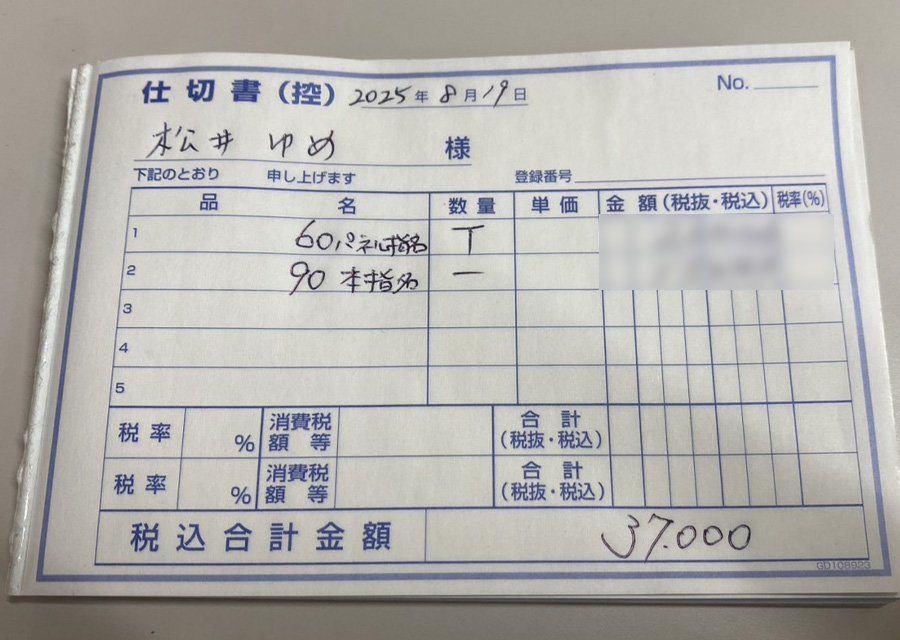 仕切書(控) 2025年 8月19日
No.
松井 ゆめ 様
下記のとおり 申し上げます
登録番号
品 名 数量 単価 金額(税抜・税込) 税率(%)
1 60パネル指名 T
2 90 本指名 一
3
4
5
税率 % 消費税額等 合計(税抜・税込)
税率 % 消費税額等 合計(税抜・税込)
税込合計金額 37.000
GD108923